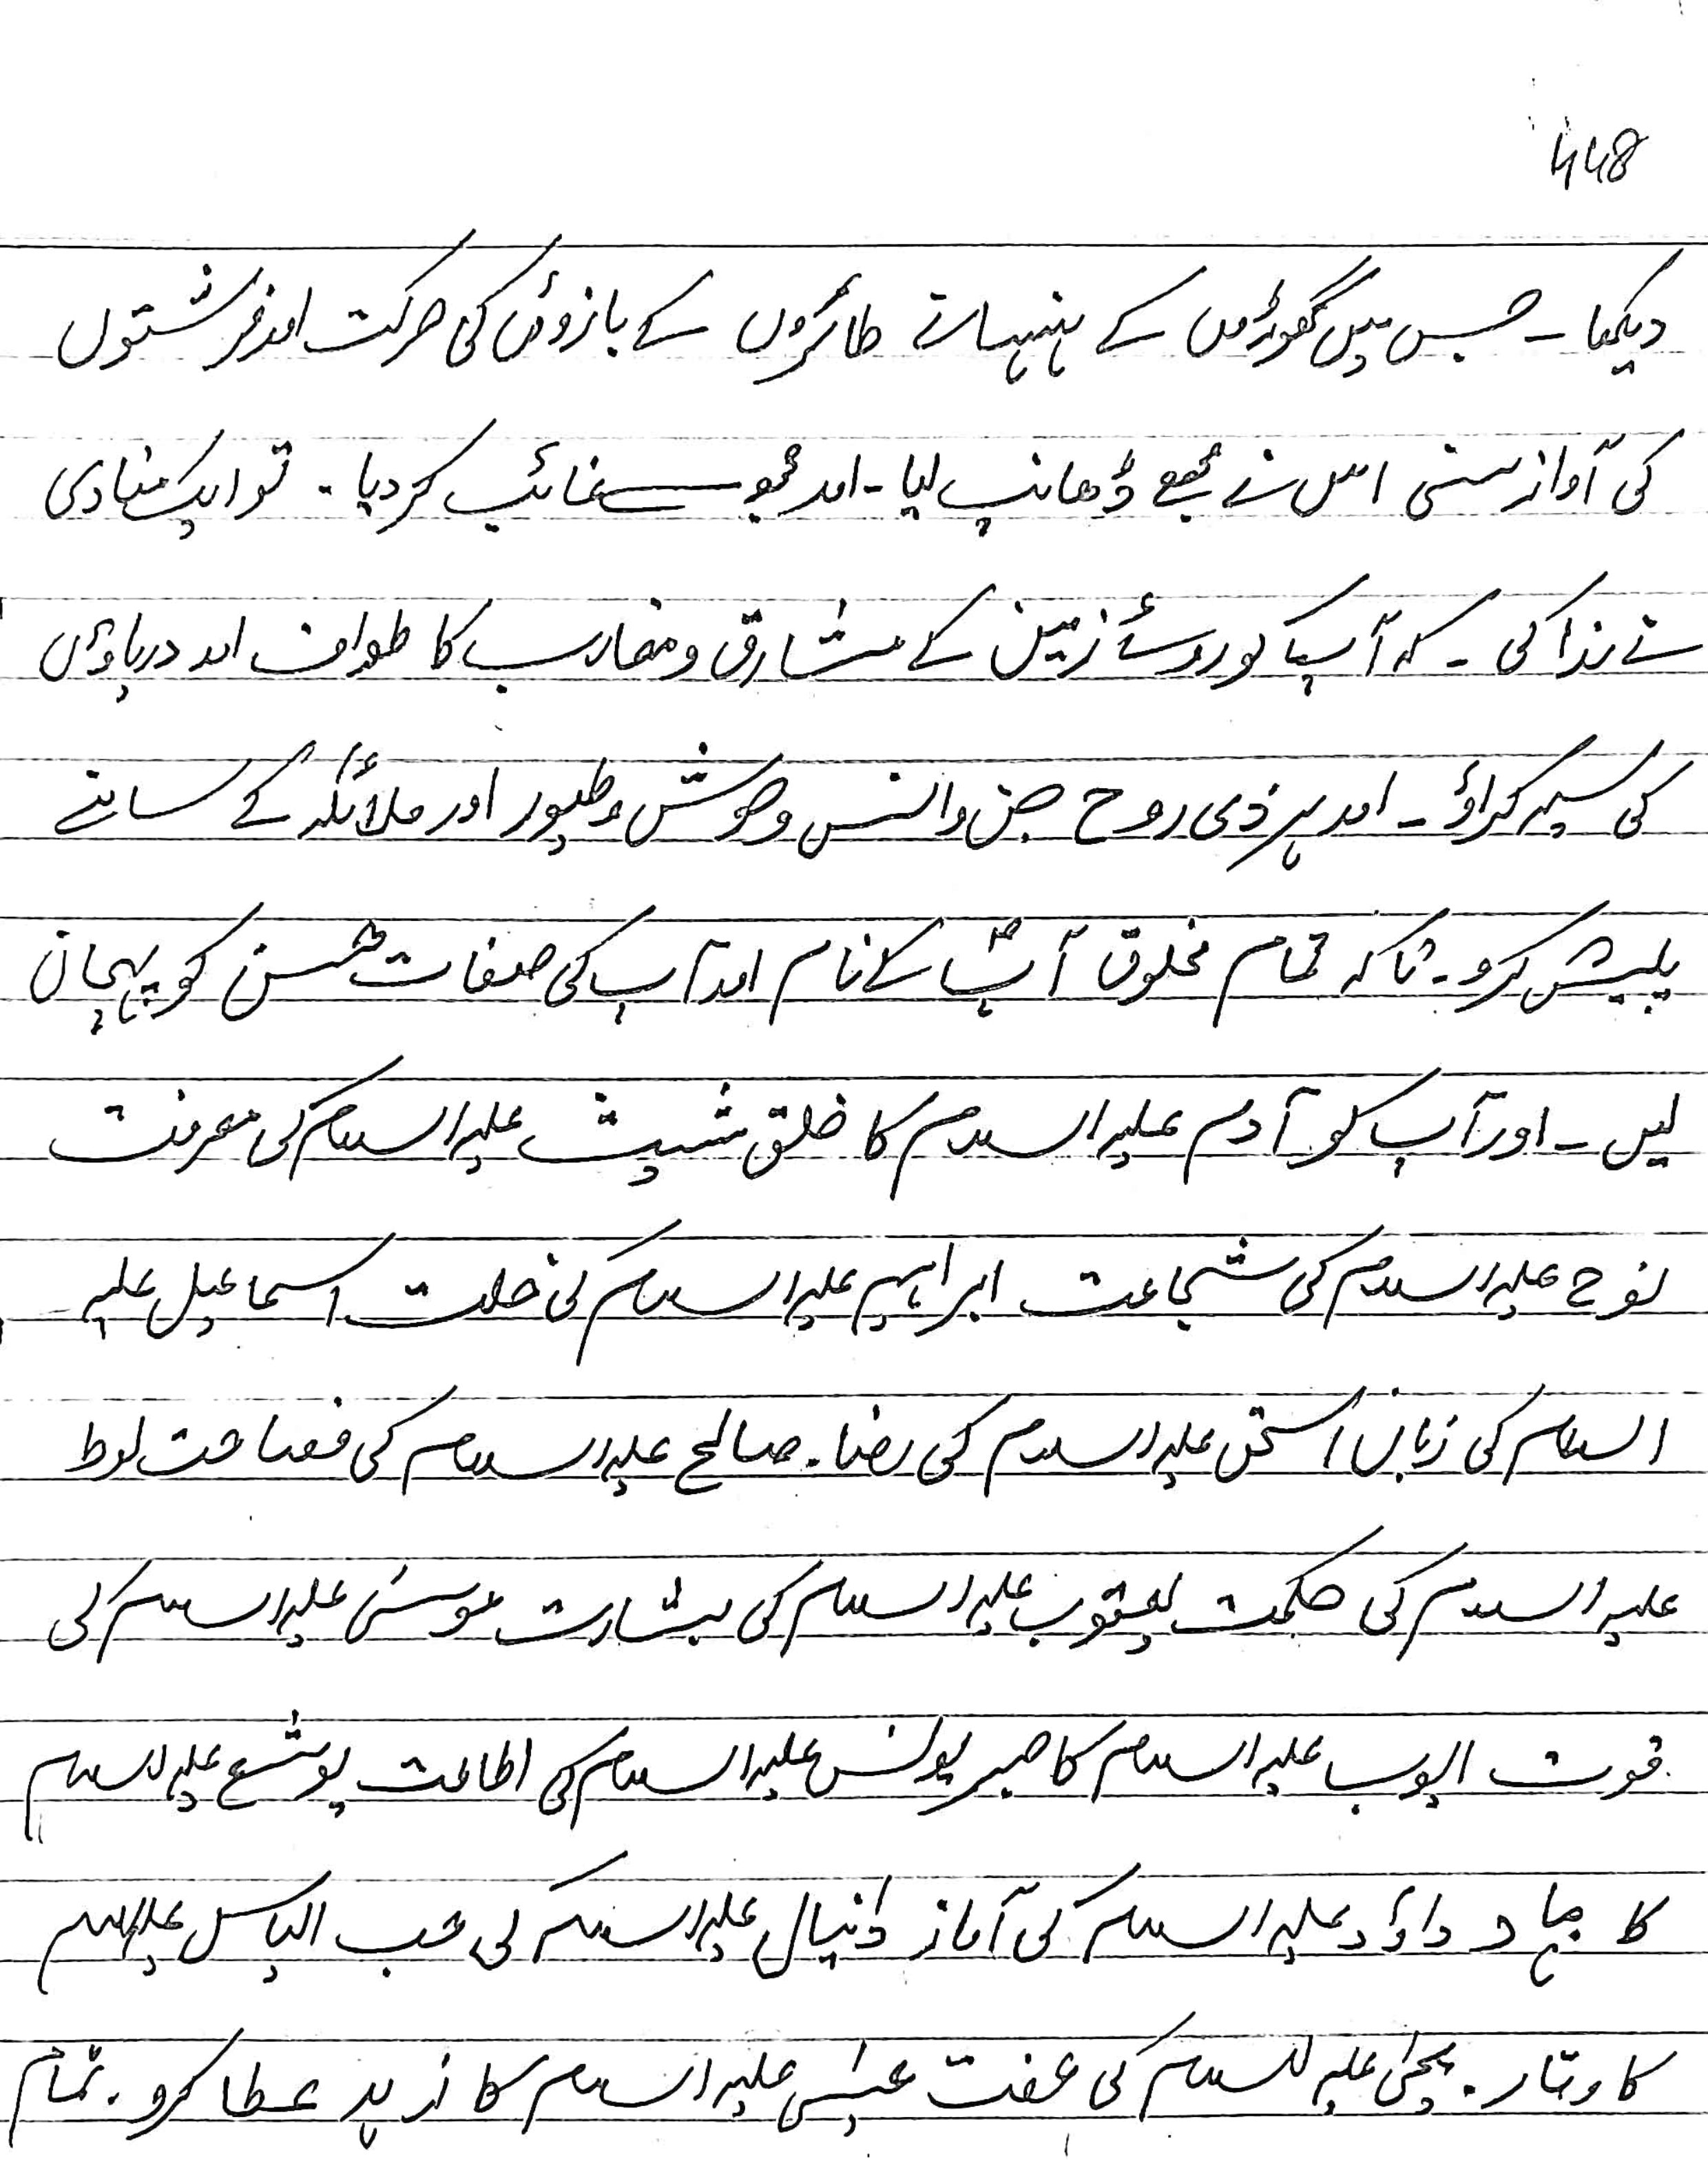 448
دیکھا ۔ جس میں گھوڑوں کے ہنہنانے طائروں کے بازوؤں کی حرکت اور فرشتوں
کی آواز سنی اس نے مجھے ڈھانپ لیا ۔ اور مجھ سے غائب کر دیا ۔ تو ایک منادی
نے ندا کی ۔ کہ آپ کو روئے زمین کے مشارق و مغارب کا طواف اور دریاؤں
کی سیر کراؤ ۔ اور ہر ذی روح جن و انس وحوش و طیور اور ملائکہ کے سامنے
پیش کرو ۔ تاکہ تمام مخلوق آپ کے نام اور آپ کی صفات حسن کو پہچان
لیں ۔ اور آپ کو آدم علیہ السلام کا خلق شیث علیہ السلام کی معرفت
نوح علیہ السلام کی شجاعت ابراہیم علیہ السلام کی خلت اسماعیل علیہ
السلام کی زبان اسحٰق علیہ السلام کی رضا ۔ صالح علیہ السلام کی فصاحت لوط
علیہ السلام کی حکمت یعقوب علیہ السلام کی بشارت موسیٰ علیہ السلام کی
قوت ایوب علیہ السلام کا صبر یونس علیہ السلام کی اطاعت یوشع علیہ السلام
کا جہاد داؤد علیہ السلام کی آواز دانیال علیہ السلام کی حب الیاس علیہ السلام
کا وقار ۔ یحیٰی علیہ السلام کی عفت عیسٰی علیہ السلام کا زہد عطا کرو ۔ تمام